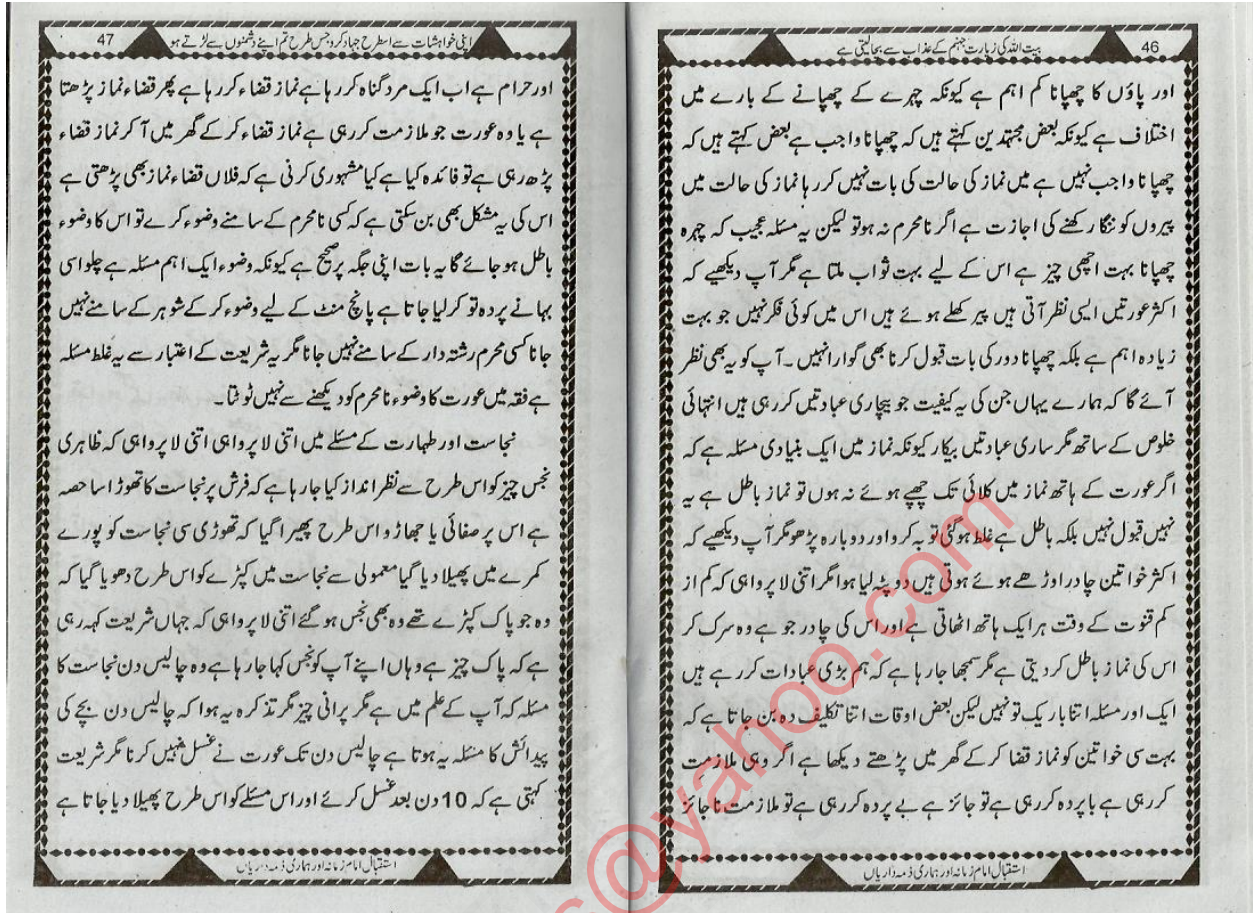 46
بیت اللہ کی زیارت جہنم کے عذاب سے بچا لیتی ہے
اور پاؤں کا چھپانا کم اہم ہے کیونکہ چہرے کے چھپانے کے بارے میں
اختلاف ہے کیونکہ بعض مجتہدین کہتے ہیں کہ چھپانا واجب ہے بعض کہتے ہیں کہ
چھپانا واجب نہیں ہے میں نماز کی حالت کی بات نہیں کر رہا نماز کی حالت میں
پیروں کو ننگا رکھنے کی اجازت ہے اگر نامحرم نہ ہو تو لیکن یہ مسئلہ عجیب کہ چہرہ
چھپانا بہت اچھی چیز ہے اس کے لیے بہت ثواب ملتا ہے مگر آپ دیکھیے کہ
اکثر عورتیں ایسی نظر آتی ہیں پیر کھلے ہوئے ہیں اس میں کوئی فکر نہیں جو بہت
زیادہ اہم ہے بلکہ چھپانا دور کی بات قبول کرنا بھی گوارا نہیں ۔ آپ کو یہ بھی نظر
آئے گا کہ ہمارے یہاں جن کی یہ کیفیت جو بیچاری عبادتیں کر رہی ہیں انتہائی
خلوص کے ساتھ مگر ساری عبادتیں بیکار کیونکہ نماز میں ایک بنیادی مسئلہ ہے کہ
اگر عورت کے ہاتھ نماز میں کلائی تک چھپے ہوئے نہ ہوں تو نماز باطل ہے یہ
نہیں قبول نہیں بلکہ باطل ہے غلط ہوگئی توبہ کرو اور دوبارہ پڑھو مگر آپ دیکھیے کہ
اکثر خواتین چادر اوڑھے ہوئے ہوتی ہیں دوپٹہ لیا ہوا مگر اتنی لاپرواہی کہ کم از
کم قنوت کے وقت ہر ایک ہاتھ اٹھاتی ہے اور اس کی چادر جو ہے وہ سرک کر
اس کی نماز باطل کر دیتی ہے مگر سمجھا جا رہا ہے کہ ہم بڑی عبادات کر رہے ہیں
ایک اور مسئلہ اتنا باریک تو نہیں لیکن بعض اوقات اتنا تکلیف دہ بن جاتا ہے کہ
بہت سی خواتین کو نماز قضا کر کے گھر میں پڑھتے دیکھا ہے اگر وہی ملازمت
کر رہی ہے باپردہ کر رہی ہے تو جائز ہے بے پردہ کر رہی ہے تو ملازمت ناجائز
استقبال امام زمانہ اور ہماری ذمہ داریاں
47
اپنی خواہشات سے اسطرح جہاد کرو جس طرح تم اپنے دشمنوں سے لڑتے ہو
اور حرام ہے اب ایک مرد گناہ کر رہا ہے نماز قضاء کر رہا ہے پھر قضاء نماز پڑھتا
ہے یا وہ عورت جو ملازمت کر رہی ہے نماز قضاء کر کے گھر میں آ کر نماز قضاء
پڑھ رہی ہے تو فائدہ کیا ہے کیا مشہوری کرنی ہے کہ فلاں قضاء نماز بھی پڑھتی ہے
اس کی یہ مشکل بھی بن سکتی ہے کہ کسی نامحرم کے سامنے وضوء کرے تو اس کا وضوء
باطل ہو جائے گا یہ بات اپنی جگہ پر صحیح ہے کیونکہ وضوء ایک اہم مسئلہ ہے چلو اسی
بہانے پردہ تو کر لیا جاتا ہے پانچ منٹ کے لیے وضوء کر کے شوہر کے سامنے نہیں
جانا کسی محرم رشتہ دار کے سامنے نہیں جانا مگر یہ شریعت کے اعتبار سے یہ غلط مسئلہ
ہے فقہ میں عورت کا وضوء نامحرم کو دیکھنے سے نہیں ٹوٹتا ۔
نجاست اور طہارت کے مسئلے میں اتنی لاپرواہی اتنی لاپرواہی کہ ظاہری
نجس چیز کو اس طرح سے نظر انداز کیا جا رہا ہے کہ فرش پر نجاست کا تھوڑا سا حصہ
ہے اس پر صفائی یا جھاڑو اس طرح پھیرا گیا کہ تھوڑی سی نجاست کو پورے
کمرے میں پھیلا دیا گیا معمولی سے نجاست میں کپڑے کو اس طرح دھویا گیا کہ
وہ جو پاک کپڑے تھے وہ بھی نجس ہوگئے اتنی لاپرواہی کہ جہاں شریعت کہہ رہی
ہے کہ پاک چیز ہے وہاں اپنے آپ کو نجس کہا جا رہا ہے وہ چالیس دن نجاست کا
مسئلہ کہ آپ کے علم میں ہے مگر پرانی چیز مگر تذکرہ یہ ہوا کہ چالیس دن بچے کی
پیدائش کا مسئلہ یہ ہوتا ہے چالیس دن تک عورت نے غسل نہیں کرنا مگر شریعت
کہتی ہے کہ 10 دن بعد غسل کرئے اور اس مسئلے کو اس طرح پھیلا دیا جاتا ہے
استقبال امام زمانہ اور ہماری ذمہ داریاں
s@yahoo.com